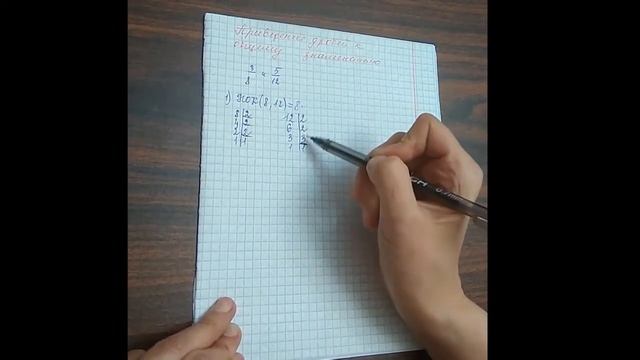 Приведение дробей к
общему знаменателю
3/8 и 5/12
1) НОК(8,12)=8
8|2 12|2
4|2 6|2
2|2 3|3
1|1 1|1